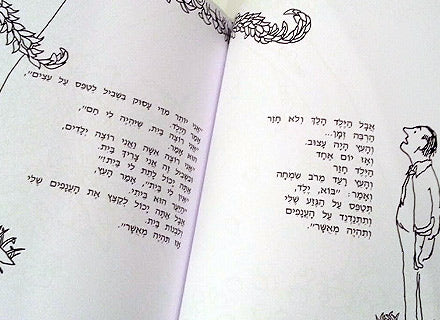 אֲבָל הַיֶּלֶד הָלַךְ וְלֹא חָזַר
הַרְבֵּה זְמַן...
וְהָעֵץ הָיָה עָצוּב.
וְאָז יוֹם אֶחָד
הַיֶּלֶד חָזַר
וְהָעֵץ רָעַד מֵרֹב שִׂמְחָה
וְאָמַר: "בּוֹא, יֶלֶד,
תְּטַפֵּס עַל הַגֶּזַע שֶׁלִּי
וְתִתְנַדְנֵד עַל הָעֲנָפִים
וְתִהְיֶה מְאֻשָּׁר".
"אֲנִי יוֹתֵר מִדַּי עָסוּק בִּשְׁבִיל לְטַפֵּס עַל עֵצִים",
אָמַר הַיֶּלֶד.
"אֲנִי רוֹצֶה בַּיִת, שֶׁיִּהְיֶה לִי חַם",
הוּא אָמַר.
"אֲנִי רוֹצֶה אִשָּׁה וַאֲנִי רוֹצֶה יְלָדִים,
וּבִשְׁבִיל זֶה אֲנִי צָרִיךְ בַּיִת.
אַתָּה יָכוֹל לָתֵת לִי בַּיִת?"
"אֵין לִי בַּיִת", אָמַר הָעֵץ,
"הַיַּעַר הוּא בֵּיתִי.
אֲבָל אַתָּה יָכוֹל לְקַצֵּץ אֶת הָעֲנָפִים שֶׁלִּי
וְלִבְנוֹת בַּיִת.
אָז תִּהְיֶה מְאֻשָּׁר".